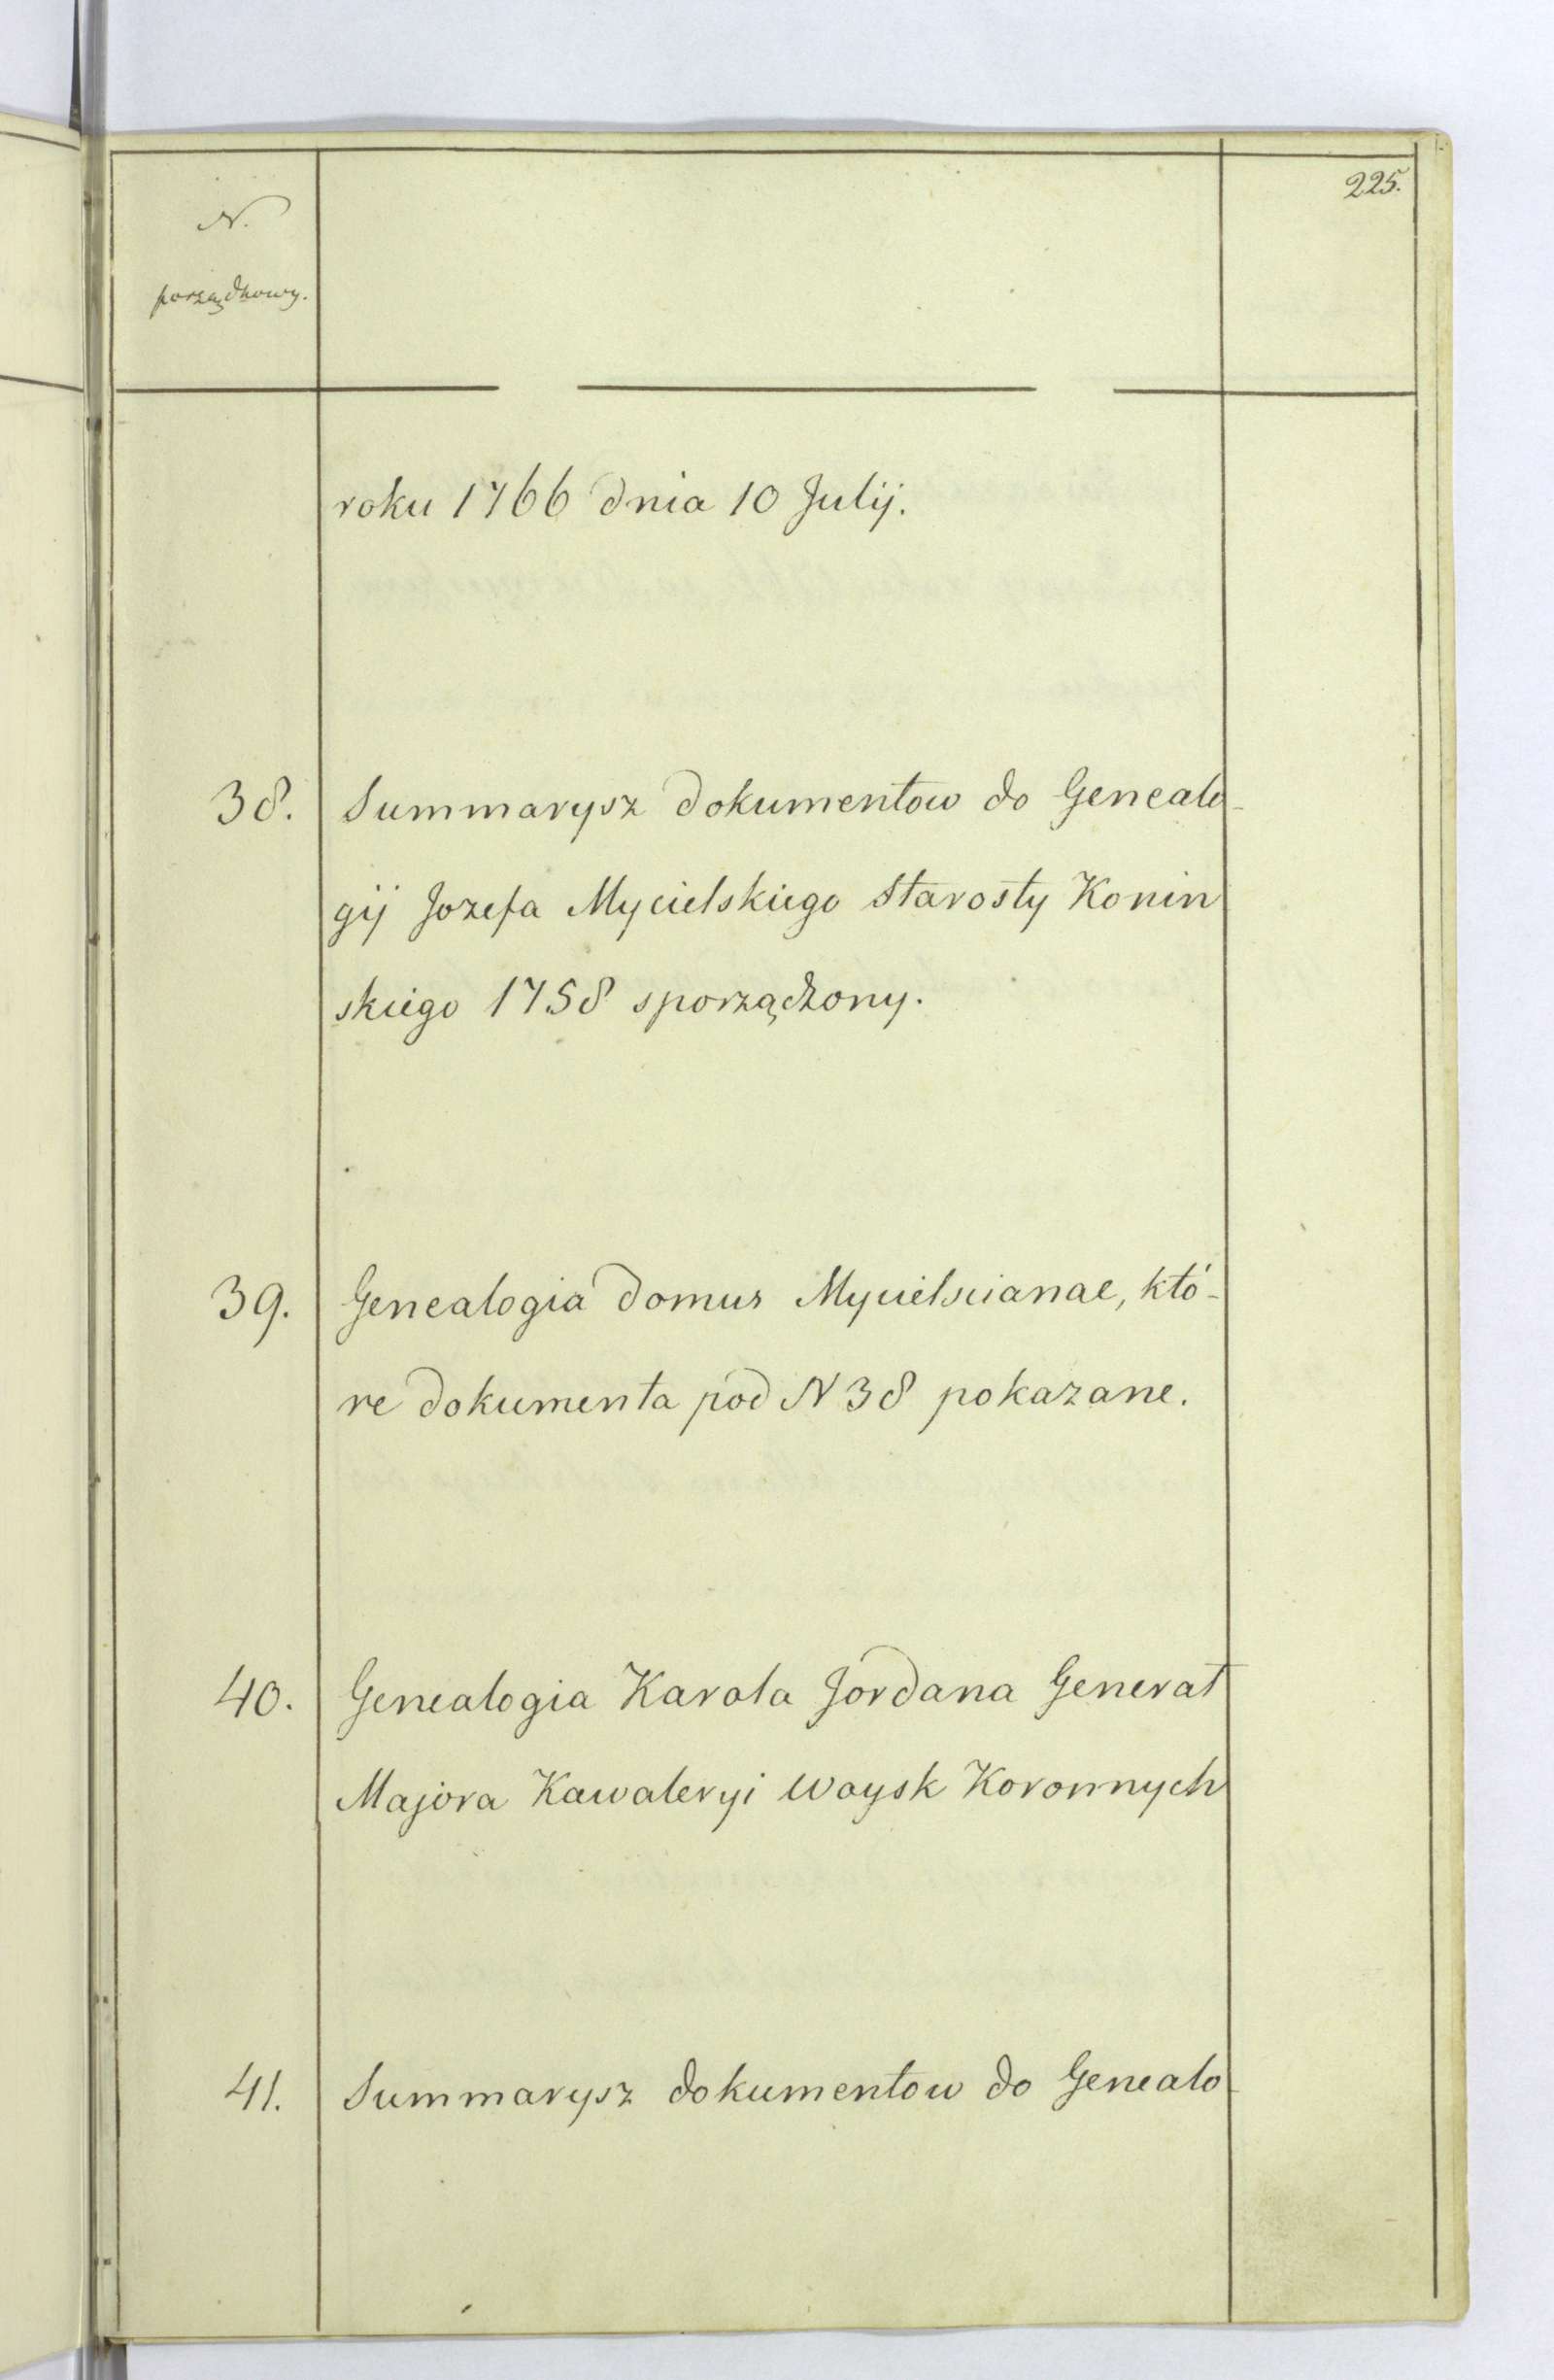 225.
N.
porządkowy.
roku 1766 dnia 10 Julij.
38. Summarysz dokumentow do Genealo-
gij Jozefa Mycielskiego Starosty Konin
skiego 1758 sporządzony.
39. Genealogia domus Mycielscianae, któ-
re dokumenta pod N 38 pokazane.
40. Genealogia Karola Jordana Generał
Majora Kawaleryi Woysk Koronnych
41. Summarysz dokumentow do Genealo-